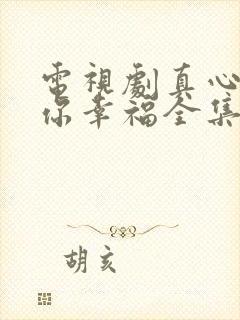 電視劇真心
你幸福全集
胡亥